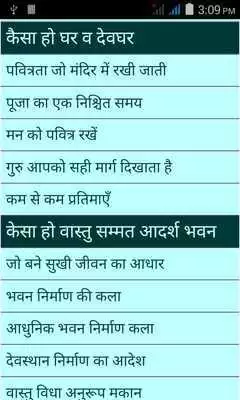 3:09 PM
कैसा हो घर व देवघर
पवित्रता जो मंदिर में रखी जाती
पूजा का एक निश्चित समय
मन को पवित्र रखें
गुरु आपको सही मार्ग दिखाता है
कम से कम प्रतिमाएँ
केसा हो वास्तु सम्मत आदर्श भवन
जो बने सुखी जीवन का आधार
भवन निर्माण की कला
आधुनिक भवन निर्माण कला
देवस्थान निर्माण का आदेश
वास्तु विधा अनुरूप मकान